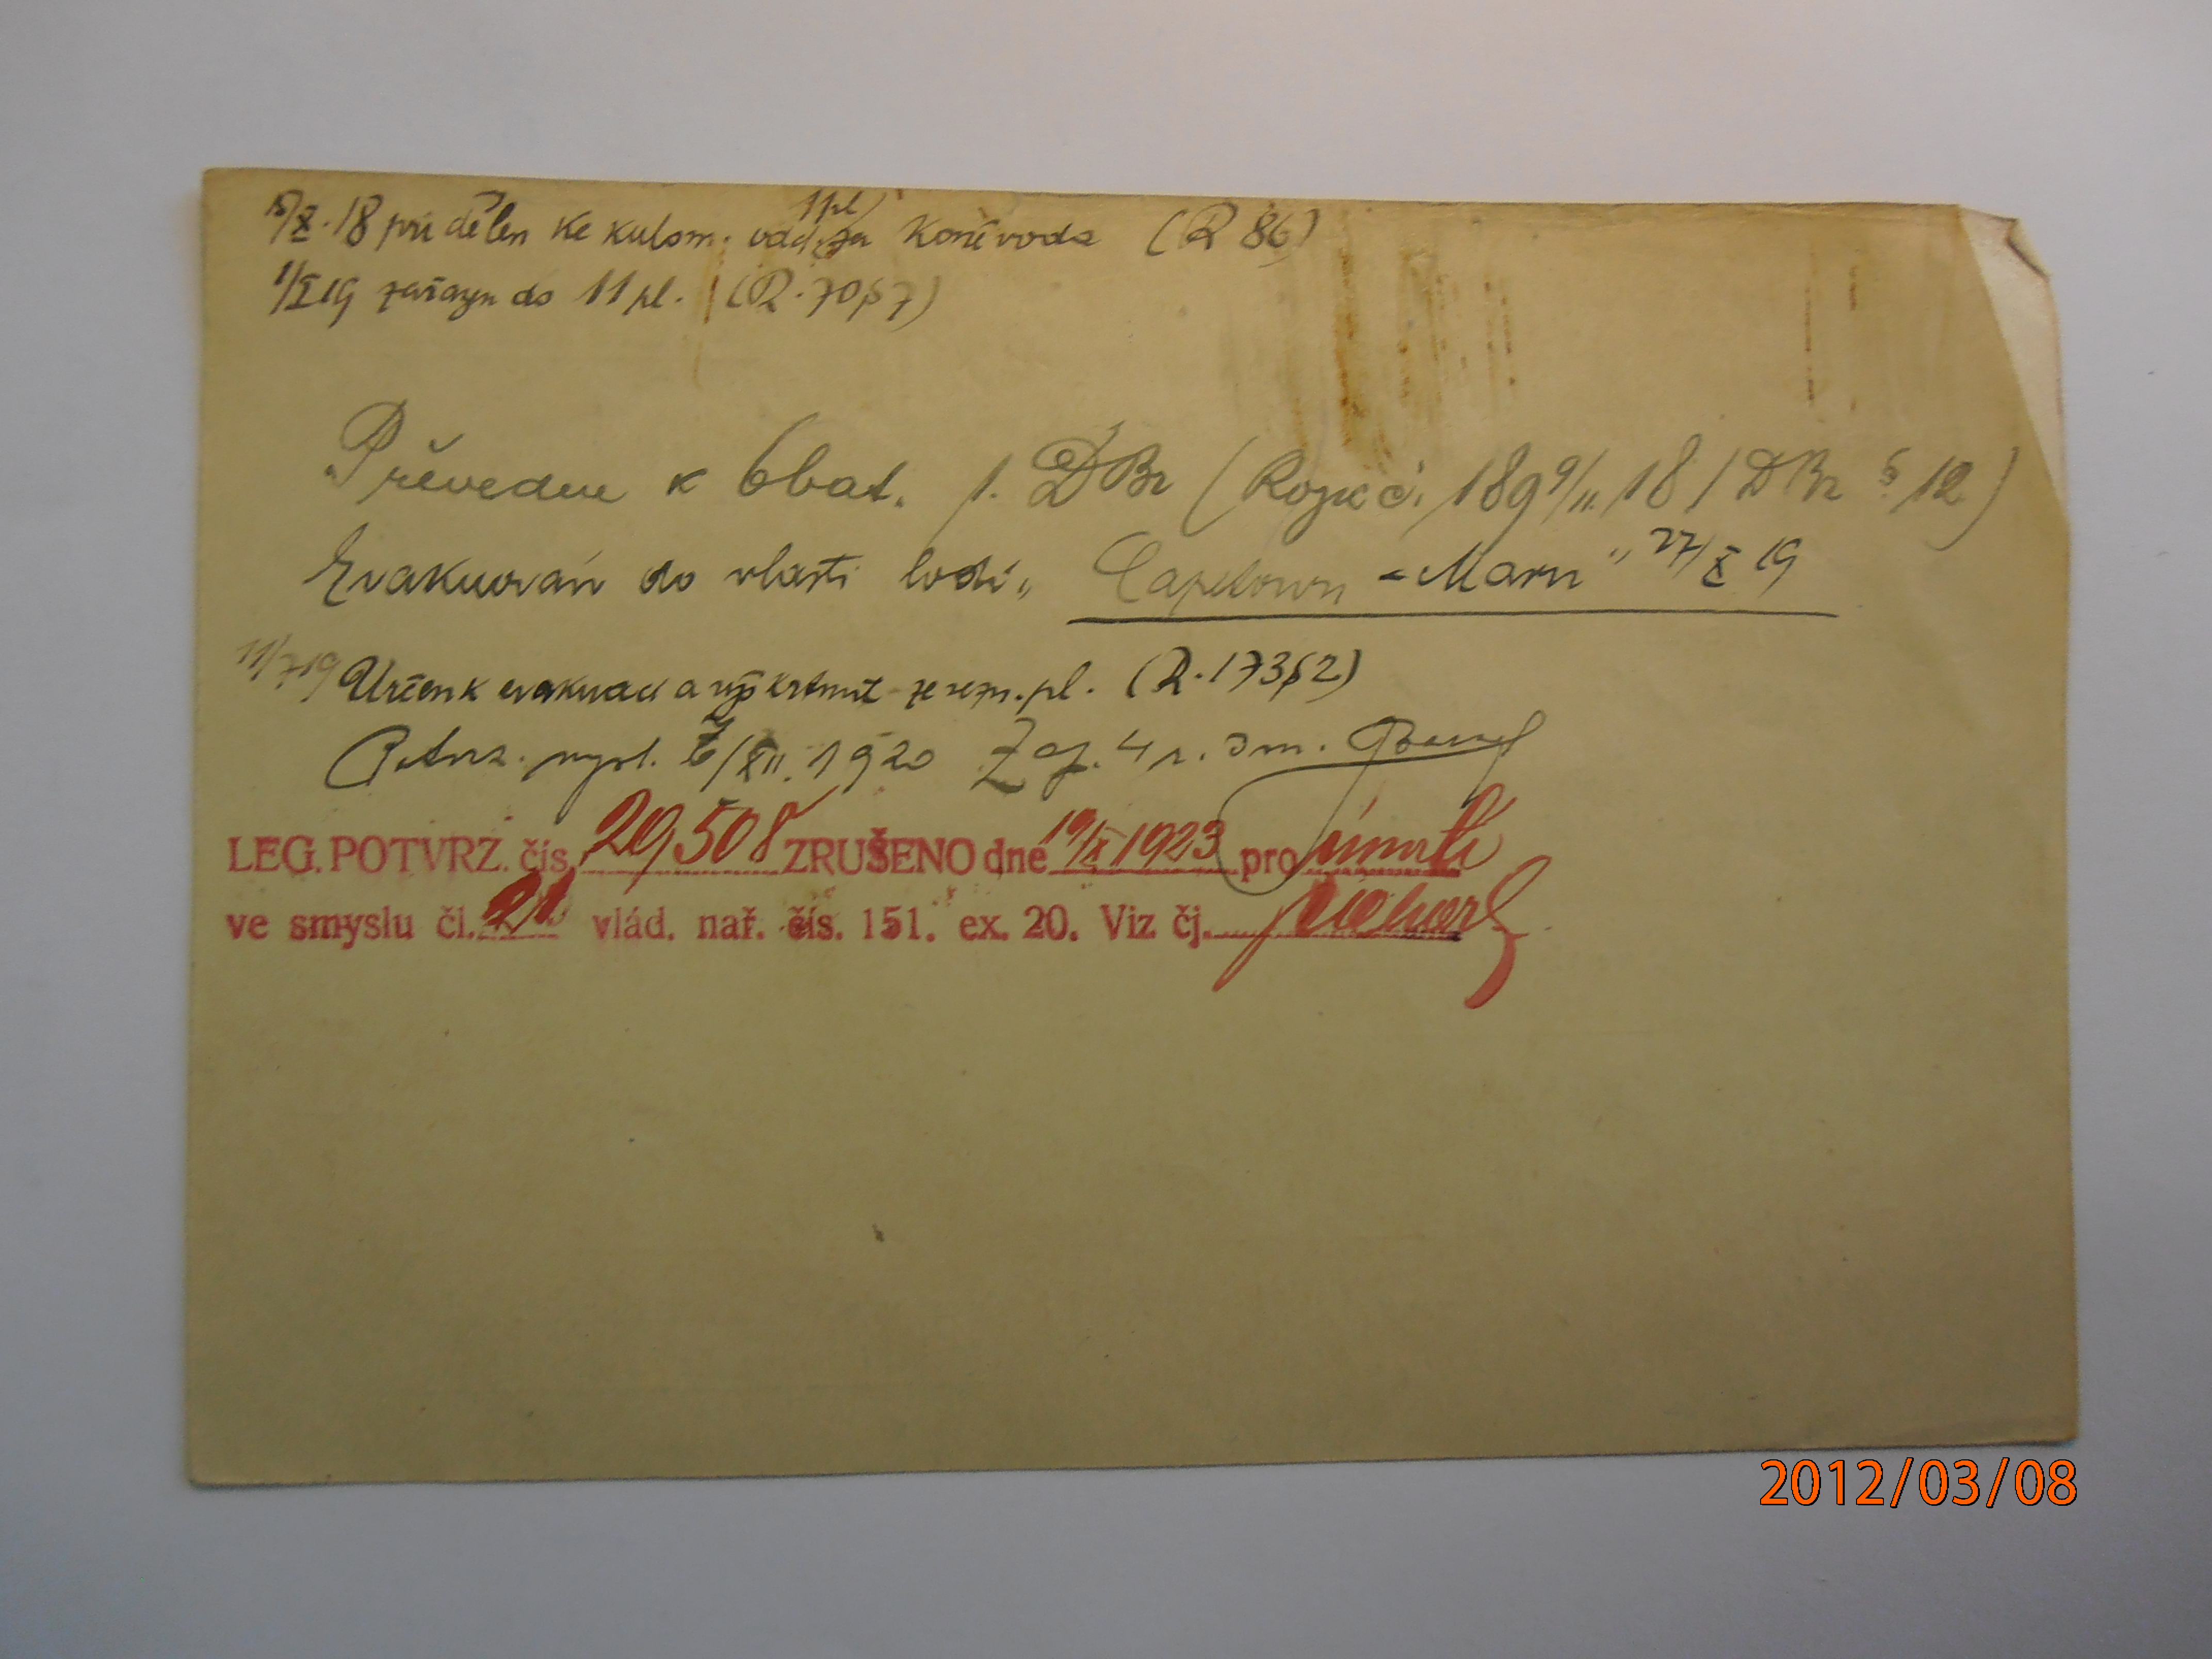 5/X.18 přidělen ke kulom. odd. 1 pl za koněvoda (R 86)
1/I 19 zařazen do 11 pl. (R. 70 § 7)
Převeden k 6 bat. 1. DBr (Rozk č. 189 9/11. 18 / DBr § 12)
Evakuován do vlasti lodí „ Capetown - Maru " 27/X 19
11/7 19 Určen k evakuaci a vyškrtnut ze sezn. pl. (R. 173 § 2)
Potvrz. vypl. /XII. 1920 Zap. 4 r. 3 m.
LEG. POTVRZ. čís. 29508 ZRUŠENO dne 19/X 1923 pro úmrtí
ve smyslu čl. 21 vlád. nař. čís. 151. ex. 20. Viz čj.
2012/03/08